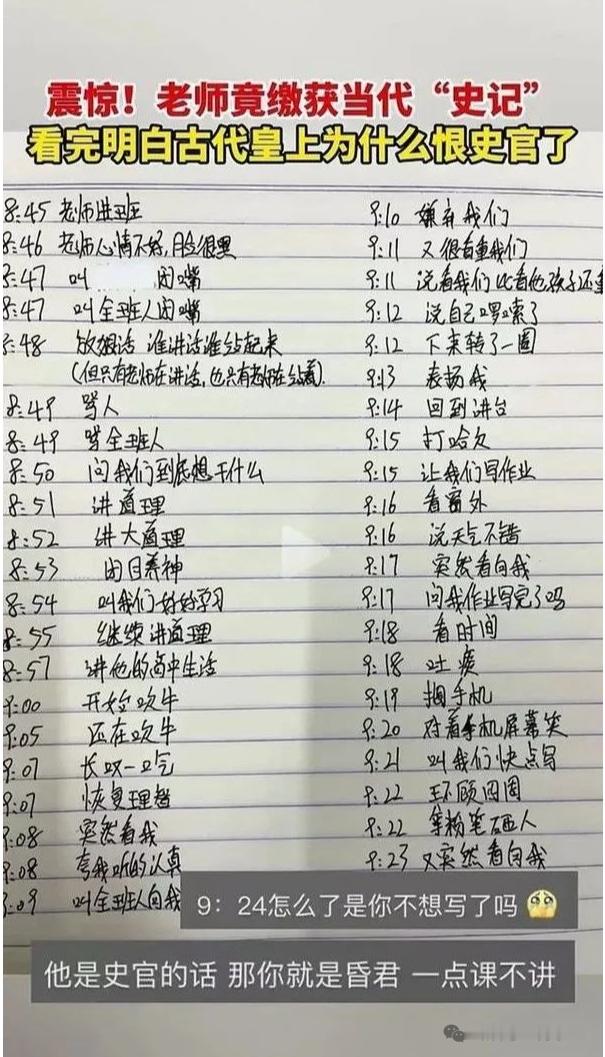 震惊！老师竟缴获当代“史记”
看完明白古代皇上为什么恨史官了
8:45 老师进班
8:46 老师心情不好,脸很黑
8:47 叫 闭嘴
8:47 叫全班人闭嘴
8:48 放狠话 谁讲话谁站起来
(但只有老师在讲话,也只有老师在站着).
8:49 骂人
8:49 骂全班人
8:50 问我们到底想干什么
8:51 讲道理
8:52 讲大道理
8:53 闭目养神
8:54 叫我们好好学习
8:55 继续讲道理
8:57 讲他的高中生活
9:00 开始吹牛
9:05 还在吹牛
9:07 长叹一口气
9:07 恢复理智
9:08 突然看我
9:08 夸我听的认真
9:09 叫全班人向我
9:10 嫌弃我们
9:11 又很看重我们
9:11 说看我们比看他孩子还重
9:12 说自己啰嗦了
9:12 下来转了一圈
9:13 表扬我
9:14 回到讲台
9:15 打哈欠
9:15 让我们写作业
9:16 看窗外
9:16 说天气不错
9:17 突然看向我
9:17 问我作业写完了吗
9:18 看时间
9:18 吐痰
9:19 掏手机
9:20 对着手机屏幕笑
9:21 叫我们快点写
9:22 环顾四周
9:22 拿粉笔砸人
9:23 又突然看向我
9：24怎么了是你不想写了吗
他是史官的话 那你就是昏君 一点课不讲